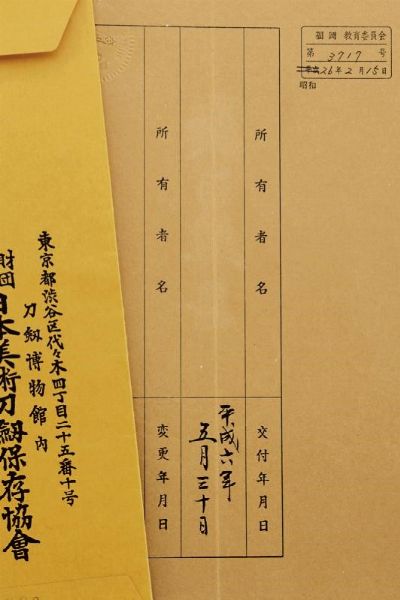 福岡 教育委員会
第 3717 号
26年2月15日
昭和
所有者名
交付年月日
平成六年
五月三十日
所有者名
変更年月日
東京都渋谷区代々木四丁目二十五番十号
刀剱博物館内
財団
日本美術刀剱保存協會